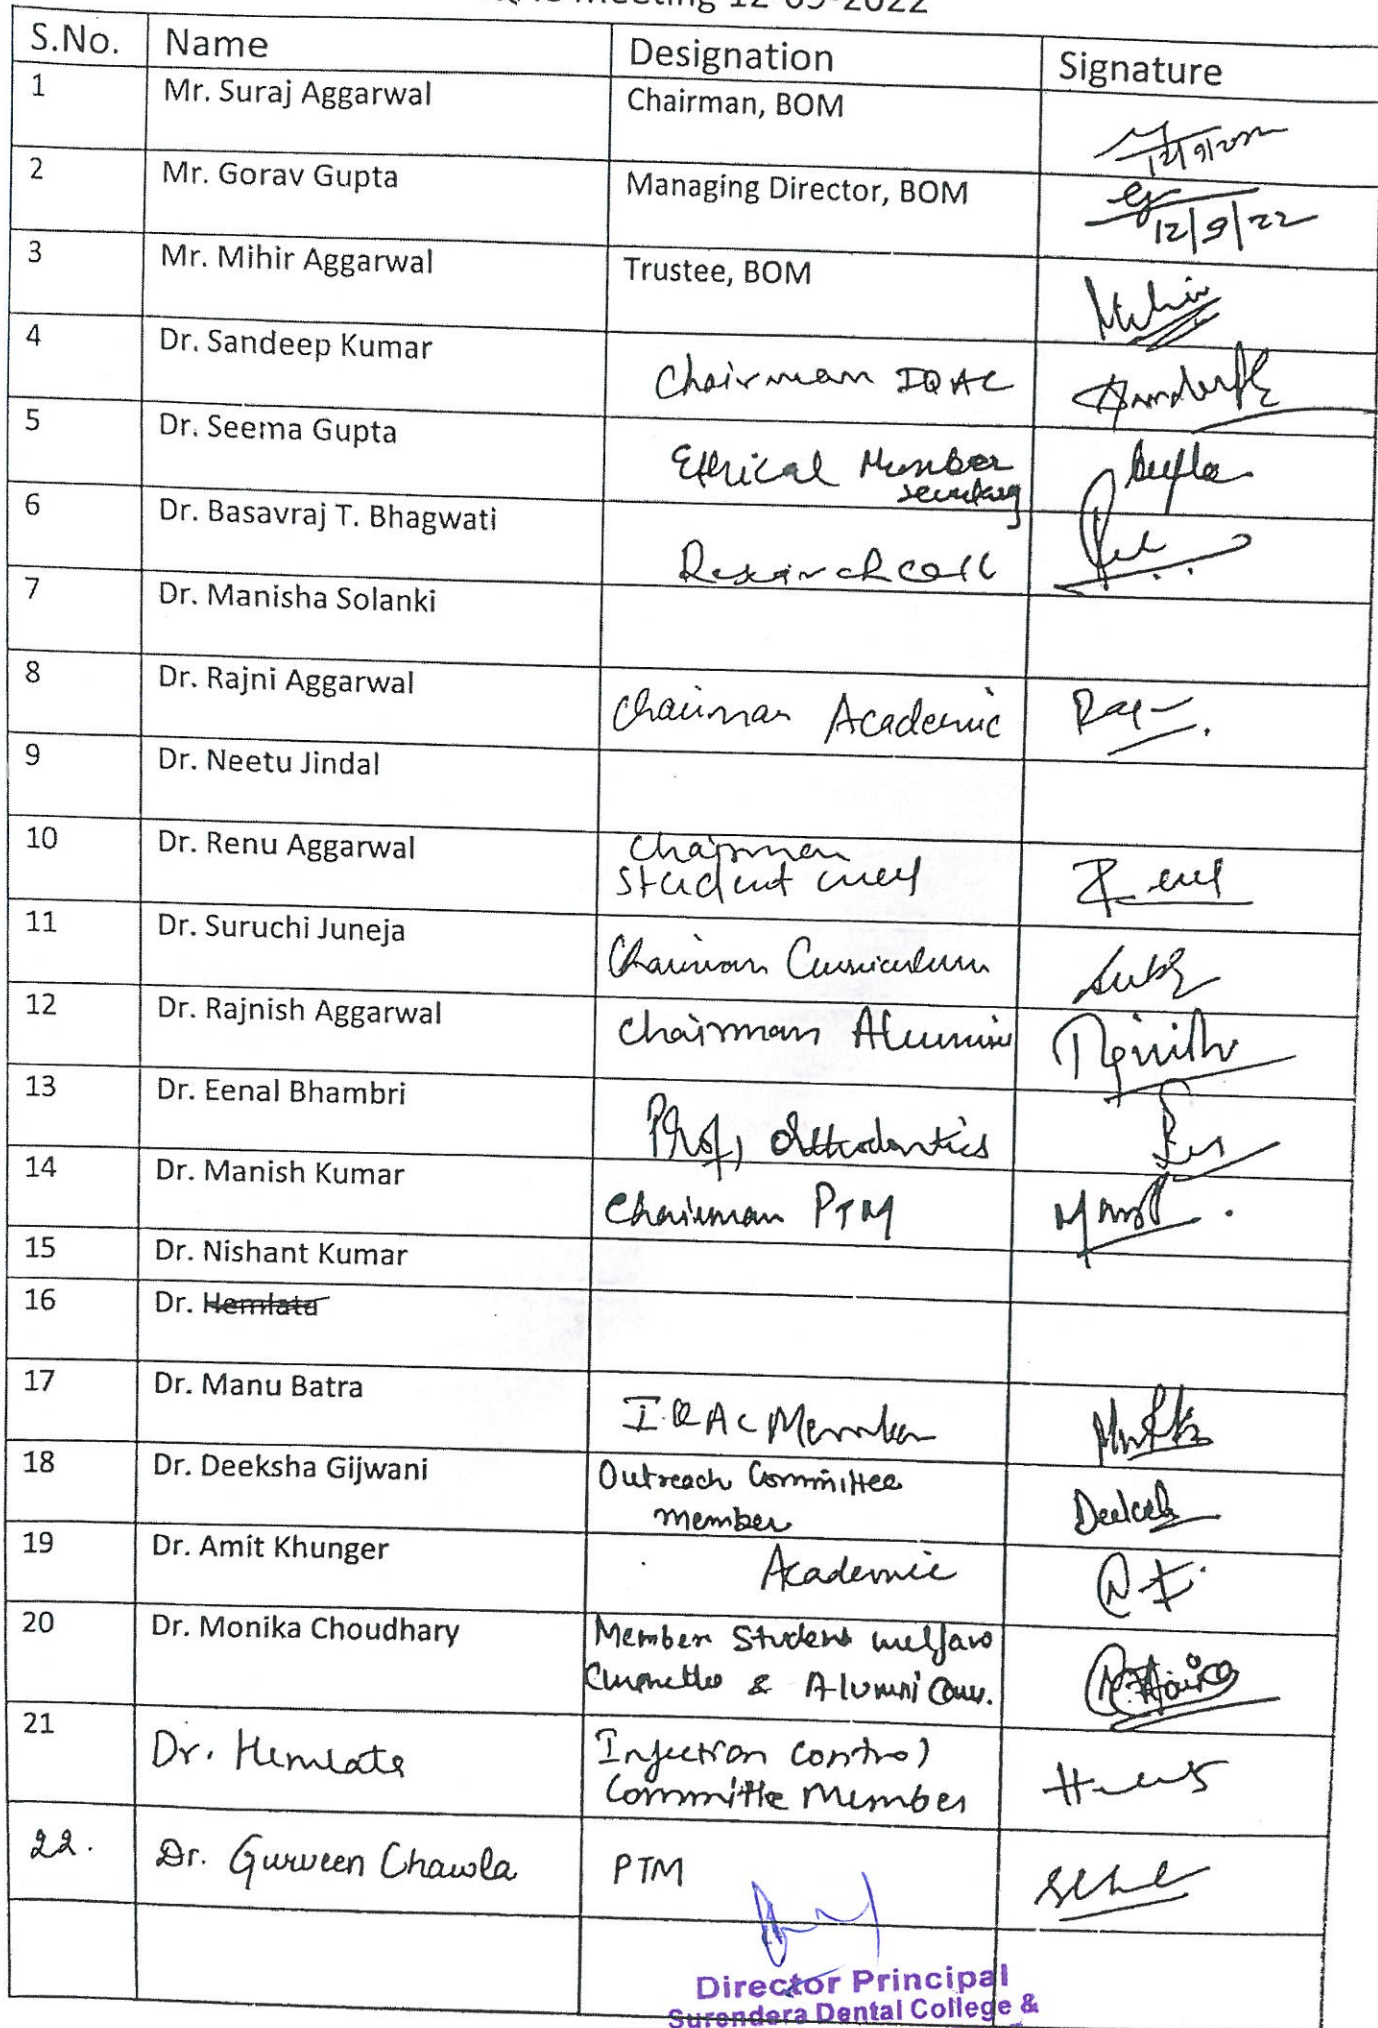 Meeting 12-09-2022
S.No. Name Designation Signature
1 Mr. Suraj Aggarwal Chairman, BOM 12/9/2022
2 Mr. Gorav Gupta Managing Director, BOM 12/9/22
3 Mr. Mihir Aggarwal Trustee, BOM Mihir
4 Dr. Sandeep Kumar Chairman IQAC
5 Dr. Seema Gupta Ethical Member
secretary
6 Dr. Basavraj T. Bhagwati Research cell
7 Dr. Manisha Solanki
8 Dr. Rajni Aggarwal Chairman Academic
9 Dr. Neetu Jindal
10 Dr. Renu Aggarwal Chairman
Student
11 Dr. Suruchi Juneja Chairman Curriculum
12 Dr. Rajnish Aggarwal Chairman Alumini
13 Dr. Eenal Bhambri Prof, Orthodontics
14 Dr. Manish Kumar Chairman PTM
15 Dr. Nishant Kumar
16 Dr. Hemlata
17 Dr. Manu Batra IQAC Member
18 Dr. Deeksha Gijwani Outreach Committee
member
19 Dr. Amit Khunger Academic
20 Dr. Monika Choudhary Member Student welfare
& Alumni
21 Dr. Hemlata Infection control
Committe Member
22. Dr. Gurveen Chawla PTM
Director Principal
Surendera Dental College &